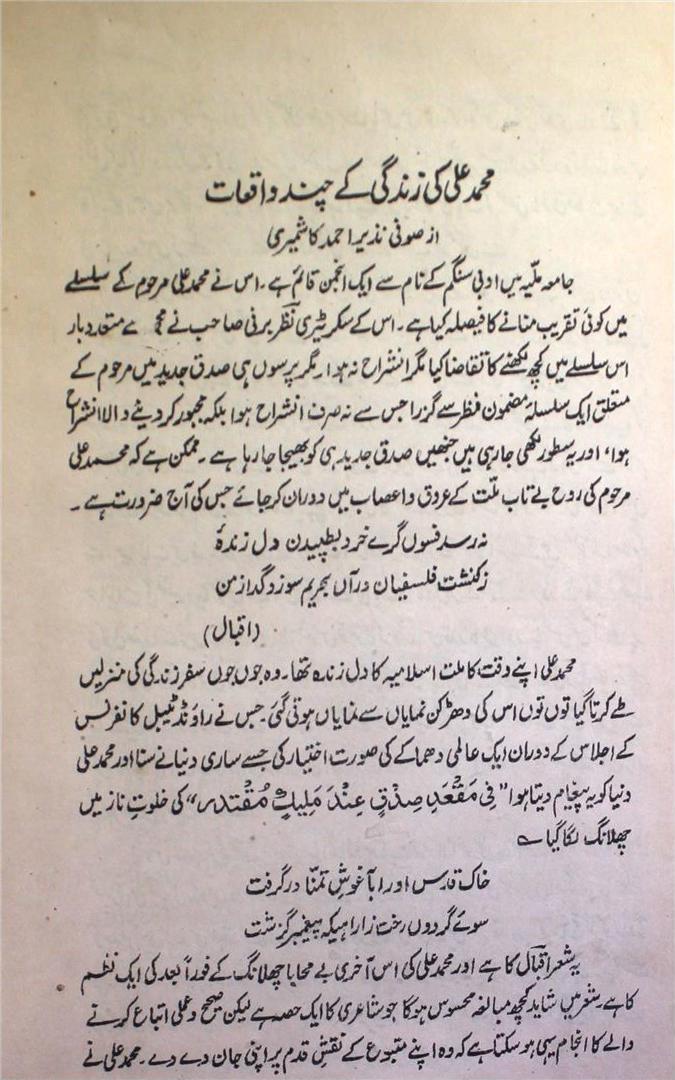 محمد علی کی زندگی کے چند واقعات
از صوفی نذیر احمد کاشمیری
جامعہ ملّیہ میں ادبی سنگم کے نام سے ایک انجمن قائم ہے۔ اس نے محمد علی مرحوم کے سلسلے
میں کوئی تقریب منانے کا فیصلہ کیا ہے۔ اس کے سکریٹری نظر برنی صاحب نے مجھ سے متعدد بار
اس سلسلے میں کچھ لکھنے کا تقاضا کیا مگر انشراح نہ ہوا۔ مگر پرسوں ہی صدق جدید میں مرحوم کے
متعلق ایک سلسلۂ مضمون نظر سے گزرا جس سے نہ صرف انشراح ہوا بلکہ مجبور کر دینے والا انشراح
ہوا، اور یہ سطور لکھی جا رہی ہیں جنھیں صدق جدید ہی کو بھیجا جا رہا ہے۔ ممکن ہے کہ محمد علی
مرحوم کی روح بے تاب ملّت کے عروق و اعصاب میں دوران کر جائے جس کی آج ضرورت ہے۔
نہ رسد فسوں گرے خرد بطپیدن دل زندۂ
زکنشت فلسفیان درآں بحریم سوز و گداز من
(اقبال)
محمد علی اپنے وقت کا ملت اسلامیہ کا دل زندہ تھا۔ وہ جوں جوں سفر زندگی کی منزلیں
طے کرتا گیا توں توں اس کی دھڑکن نمایاں سے نمایاں ہوتی گئی۔ جس نے راؤنڈ ٹیبل کانفرنس
کے اجلاس کے دوران ایک عالمی دھماکے کی صورت اختیار کی جسے ساری دنیا نے سنا اور محمد علی
دنیا کو یہ پیغام دیتا ہوا "فِی مَقْعَدِ صِدْقٍ عِنْدَ مَلِیْكٍ مُقْتَدِر" کی خلوتِ ناز میں
چھلانگ لگا گیا ؎
خاک قدس او را بآغوشِ تمنّا در گرفت
سوئے گردوں رفت زاں راہیکہ پیغمبر گزشت
یہ شعر اقبال کا ہے اور محمد علی کی اس آخری بے محابا چھلانگ کے فوراً بعد کی ایک نظم
کا ہے۔ شعر میں شاید کچھ مبالغہ محسوس ہوگا جو شاعری کا ایک حصہ ہے لیکن صحیح و عملی اتباع کرنے
والے کا انجام یہی ہو سکتا ہے کہ وہ اپنے متبوع کے نقشِ قدم پر اپنی جان دے دے۔ محمد علی نے